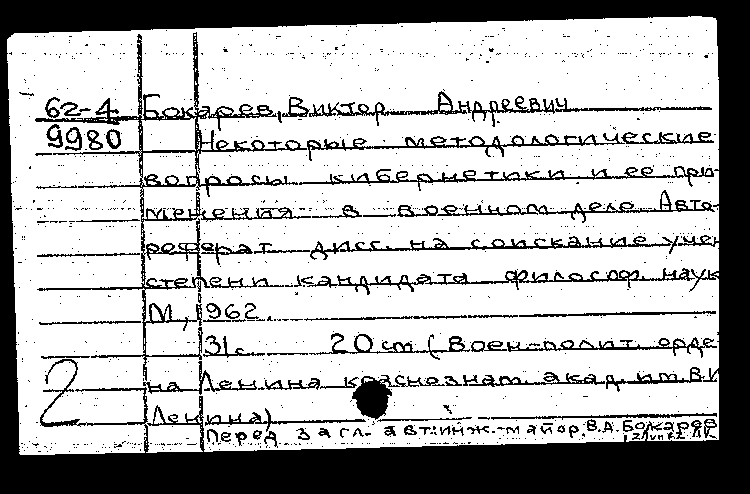 62-4 Бокарев, Виктор Андреевич
9980 Некоторые методологические
вопросы кибернетики и ее при-
менения в военном деле Авто-
реферат дисс. на соискание учен
степени кандидата философ. наук
М, 1962.
31с. 20 см (Воен-полит. орде
на Ленина краснознам. акад. им. В.И
2 Ленина)
Перед загл. авт: инж.-майор, В.А. Бокарев